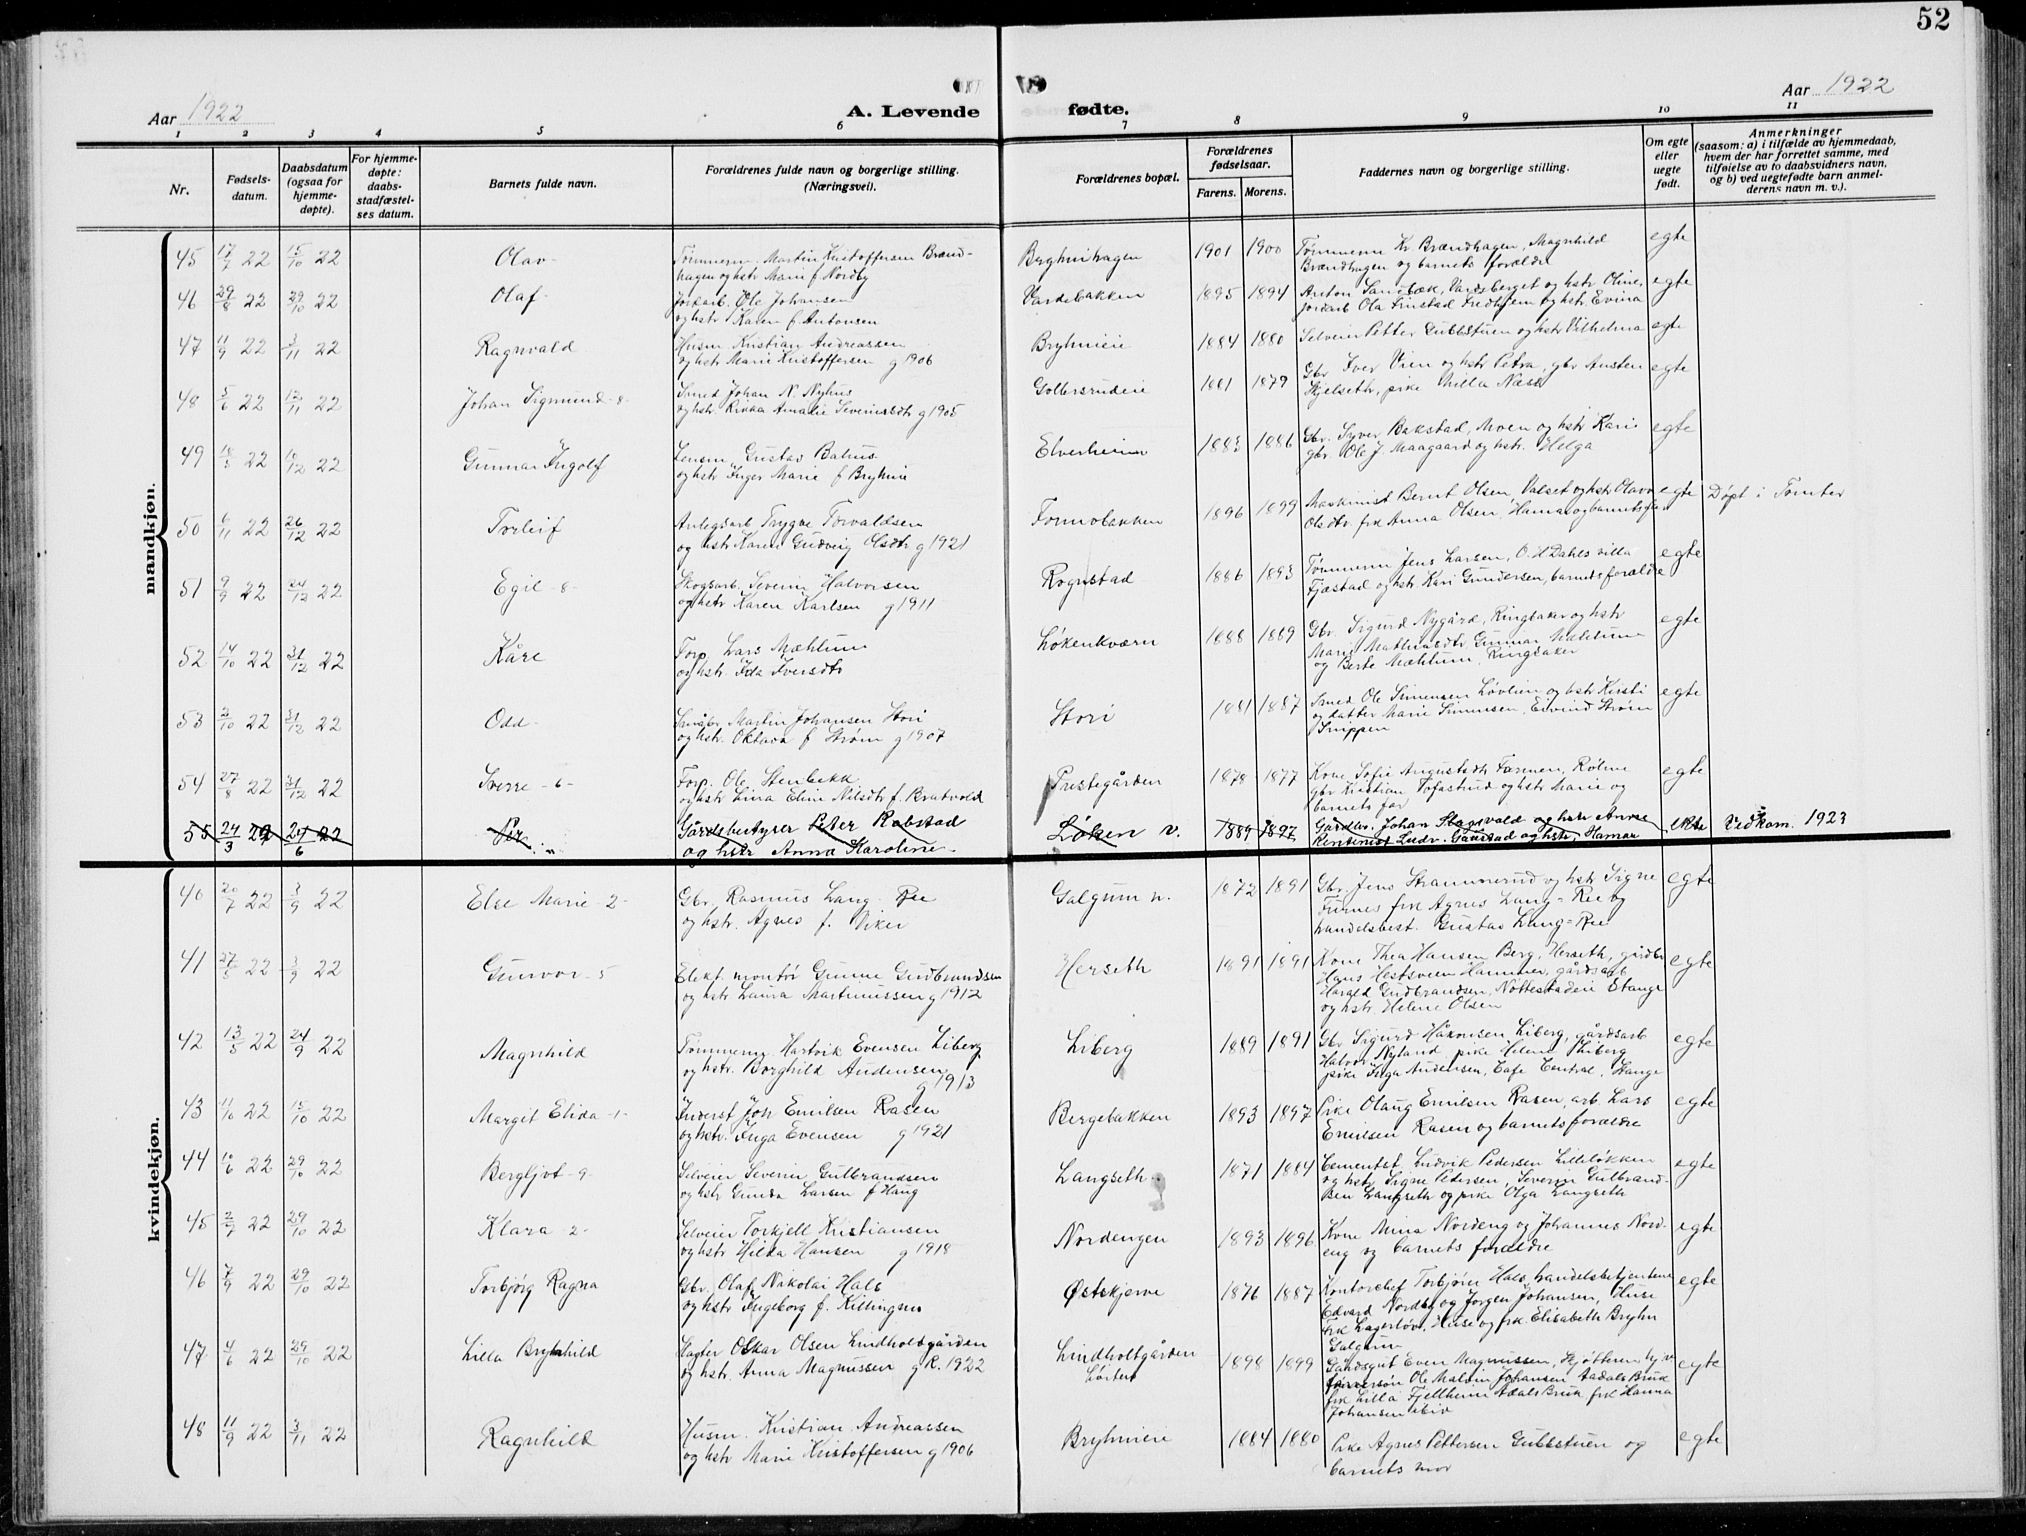 52
Aar 1922
A. Levende
fødte.
Aar 1922
1 2 3 4 5 6 7 8 9 10 11
Nr.
Fødsels-
datum.
Daabsdatum
(ogsaa for
hjemme-
døpte).
For hjemme-
døpte:
daabs-
stadfæstel-
ses datum.
Barnets fulde navn.
Forældrenes fulde navn og borgerlige stilling.
(Næringsvei).
Forældrenes bopæl.
Forældrenes
fødselsaar.
Farens. Morens.
Faddernes navn og borgerlige stilling.
Om egte
eller
uegte
født.
Anmerkninger
(saasom: a) i tilfælde av hjemmedaab,
hvem der har forrettet samme, med
tilføielse av to daabsvidners navn,
og b) ved uegtefødte barn anmel-
derens navn m. v.).
mandkjøn.
45 17/7 22 15/10 22 Olav Tømmerm. Martin Kristoffersen Brænd-
hagen og hstr Marie f Nordby
Bryhnihagen 1901 1900 Tømmerm Kr Brændhagen, Magnhild
Brændhagen og barnets forældre egte
46 29/8 22 29/10 22 Olaf Jordarb. Ole Johansen
og hstr Karen f Antonsen
Vardebakken 1895 1894 Anton Sandbæk, Vardeberget og hstr Oline,
jordarb Ola Finstad Fredhjem og hstr Evina egte
47 11/9 22 3/11 22 Ragnvald Husm Kristian Andreassen
og hstr Marie Kristoffersen g 1906
Bryhnieie 1884 1880 Selveier Petter Gubbstuen og hstr Vilhelma egte
48 5/6 22 12/11 22 Johan Sigmund - 8 - Smed Johan N. Nyhus
og hstr. Amalie Severinsdtr g 1905
Gollersrudeie 1881 1879 Gbr Iver Vien og hstr Petra, gbr Austen
Hjelseth, pike Milla Næss egte
49 22 22 Gunnar Ingolf Gustav Balhus
og hstr Inger Marie f Bryhnie
Elverheim 1883 1886 Gbr. Syver Bakstad, Moen og hstr Kari
gbr. Ole J Maagaard og hstr. Helga egte
50 6/11 22 26/12 22 Torleif Anlegsarb Trygve Torvaldsen
og hstr Karen Gudveig Olsdtr g 1921
Fonnobakken 1896 1899 Maskinist Bernt Olsen, Valset og hstr Olava
Olsdtr. frk Anna Olsen, Hamar og barnets far egte Døpt i Tomter
51 9/9 22 24/12 22 Egil - 8 - Skogsarb. Severin Halvorsen
og hstr Karen Karlsen g 1911
Rognstad 1886 1893 Tømmerm Jens Larsen, O. H Dahls villa
Fjæstad og hstr Kari Gundersen, barnets forældre egte
52 14/10 22 31/12 22 Kåre Forp. Lars Mæhlum
og hstr. Ida Iversdtr
Løkenkværn 1888 1889 Gbr. Sigurd Nygård, Ringsaker og hstr
Marie Mathiasdtr, Gunnar Mæhlum
og Berte Mæhlum, Ringsaker egte
53 3/10 22 31/12 22 Odd Småbr Martin Johansen Stori
og hstr. Oktava f Strøm g 1907
Stori 1881 1887 Smed Ole Simensen Løvlien og hstr Kirsti
og datter Marie Simensen, Eivind Strøm
Snippen egte
54 27/8 22 31/12 22 Sverre - 6 - Forp. Ole Stenbekk
og hstr Lina Eline Nilsdtr f. Bratvold
Prestegården 1878 1877 Kone Sofie Augustsdtr Farmen, Røhne
gbr Kristian Tofastrud og hstr Marie og
barnets far egte
55 24/3 22 24/6 22 Per Gårdsbestyrer Peter Robstad
og hstr Anna Karoline
Løken v. 1889 1897 Gårdbr. Johan Slagsvold og hstr Anne
Rentenist Ludv. Gaustad og hstr, Hamar ekte Vedkom. 1923
kvindekjøn.
40 20/7 22 3/9 22 Else Marie - 2 - Gbr. Rasmus Lang-Ree
og hstr. Agnes f. Viker
Galgum n. 1872 1891 Gbr. Jens Strammerud og hstr Signe
Furnes frk Agnes Lang-Ree og
handelsbest. Gustav Lang-Ree egte
41 27/5 22 3/9 22 Gunvor - 5 Elekt. montør Gunne Gudbrandsen
og hstr Laura Martinussen g 1912
Herseth 1891 1891 Kone Thea Hansen Berg, Herseth, gårdbr
Hans Hestsveen Hammer, gårdsarb
Harald Gudbrandsen, Nottestadeie Stange
og hstr Helene Olsen egte
42 13/5 22 24/9 22 Magnhild Tømmerm. Hartvik Evensen Liberg
og hstr. Borghild Andersen
g 1913
Liberg 1889 1891 Gbr Sigurd Håkonsen Liberg, gårdsarb
Halvor Nyland, pike Helene Liberg
pike Inga Andersen, Cafe Central, Stange egte
43 11/10 22 15/10 22 Margit Elida - 1 - Inderst Joh Emilsen Rasen
og hstr. Inga Evensen g 1921
Bergebakken 1893 1897 Pike Olaug Emilsen Rasen, arb Lars
Emilsen Rasen og barnets forældre egte
44 10/6 22 29/10 22 Bergljot - 9 Selveier Severin Gulbrandsen
og hstr Gunda Larsen f Haug
Langseth 1871 1884 Cementst. Ludvik Pedersen Lilleløkken
og hstr Signe Pedersen, Severin Gulbrand-
sen Langseth og pike Olga Langseth egte
45 2/9 22 29/10 22 Klara - 2 - Selveier Torkjell Kristiansen
og hstr Hilda Hansen g 1918
Nordengen 1893 1896 Kone Mina Nordeng og Johannes Nord-
eng og barnets forældre egte
46 7/9 22 29/10 22 Torbjørg Ragna Gbr. Olaf Nikolai Hals
og hstr Ingeborg f. Killingmo
Østskjerve 1876 1887 Kontorchef Torbjørn Hals, handelsbetjentene
Edvard Nordby og Jørgen Johansen, Huse
frk Lagerløv, Huse og frk. Elisabeth Bryhn
Galgum egte
47 4/6 22 29/10 22 Lilla Brynhild Oskar Olsen Lindholtgården
og hstr. Anna Magnussen g K. 1922
Lindholtgården
Løiten 1898 1899 Gårdsgut Even Magnussen,
Ole Martin Johansen Aadals Bruk
frk Lilla Fjellheim Adals Bruk frk Hanna
Johansen ibid egte
48 11/9 22 3/11 22 Ragnhild Husm. Kristian Andreassen
og hstr Marie Kristoffersen g 1906
Bryhnieie 1884 1880 Pike Agnes Pettersen Gubbstuen og
barnets mor egte